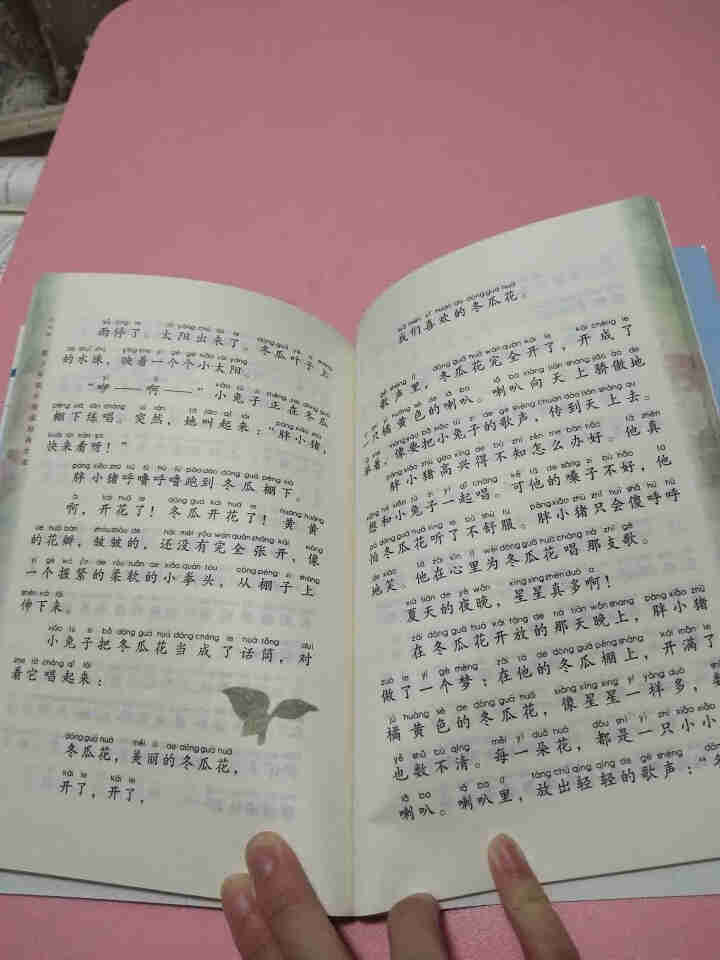 雨停了，太阳出来了。冬瓜叶子上
的水珠，映着一个个小太阳。
“咿——啊——”小兔子正在冬瓜
棚下练唱。突然，她叫起来：“胖小猪，
快来看呀！”
胖小猪呼噜呼噜跑到冬瓜棚下。
啊，开花了！冬瓜开花了！黄黄
的花瓣，皱皱的，还没有完全张开，像
一个握紧的柔软的小拳头，从棚子上
伸下来。
小兔子把冬瓜花当成了话筒，对
着它唱起来：
冬瓜花，美丽的冬瓜花，
开了，开了，
我们喜欢的冬瓜花。
歌声里，冬瓜花完全开了，开成了
一只橘黄色的喇叭。喇叭向天上骄傲地
举着，像要把小兔子的歌声，传到天上去。
胖小猪高兴得不知怎么办好。他真
想和小兔子一起唱。可他的嗓子不好，他
怕冬瓜花听了不舒服。胖小猪只会傻呼呼
地笑。他在心里为冬瓜花唱那支歌。
夏天的夜晚，星星真多啊！
在冬瓜花开放的那天晚上，胖小猪
做了一个梦：在他的冬瓜棚上，开满了
橘黄色的冬瓜花，像星星一样多，数
也数不清。每一朵花，都是一只小小
喇叭。喇叭里，放出轻轻的歌声：“冬